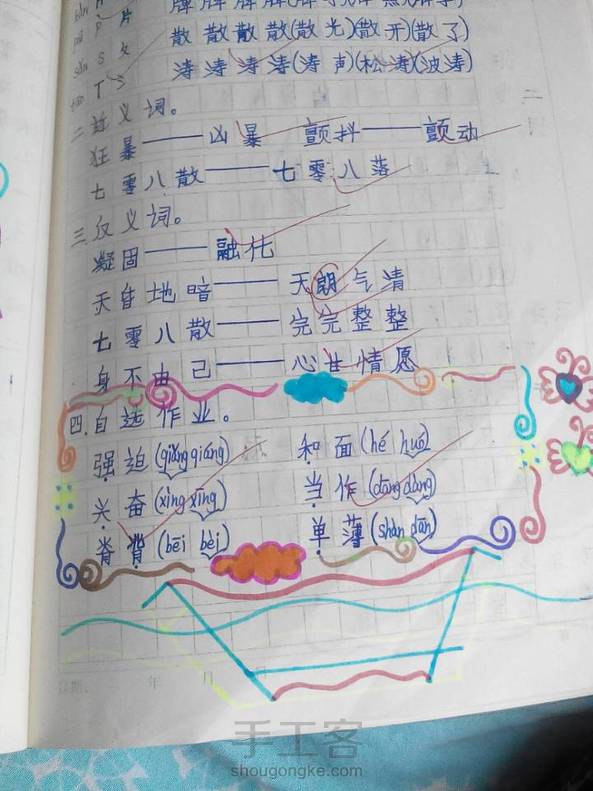 牌 牌 牌 牌
片
散 散 散 散(散光)(散开)(散了)
S 攵
涛 涛 涛 涛(涛声)(松涛)(波涛)
二.近义词。
狂暴——凶暴 颤抖——颤动
七零八散——七零八落
三.反义词。
凝固——融化
天昏地暗——天朗气清
七零八散——完完整整
身不由己——心甘情愿
四.自选作业。
强迫(qiǎng qiáng) 和面(hé huó)
兴奋(xìng xīng) 当作(dāng dàng)
脊背(bēi bèi) 单薄(shàn dān)
日期: 年 月 日
手工客
shougongke.com